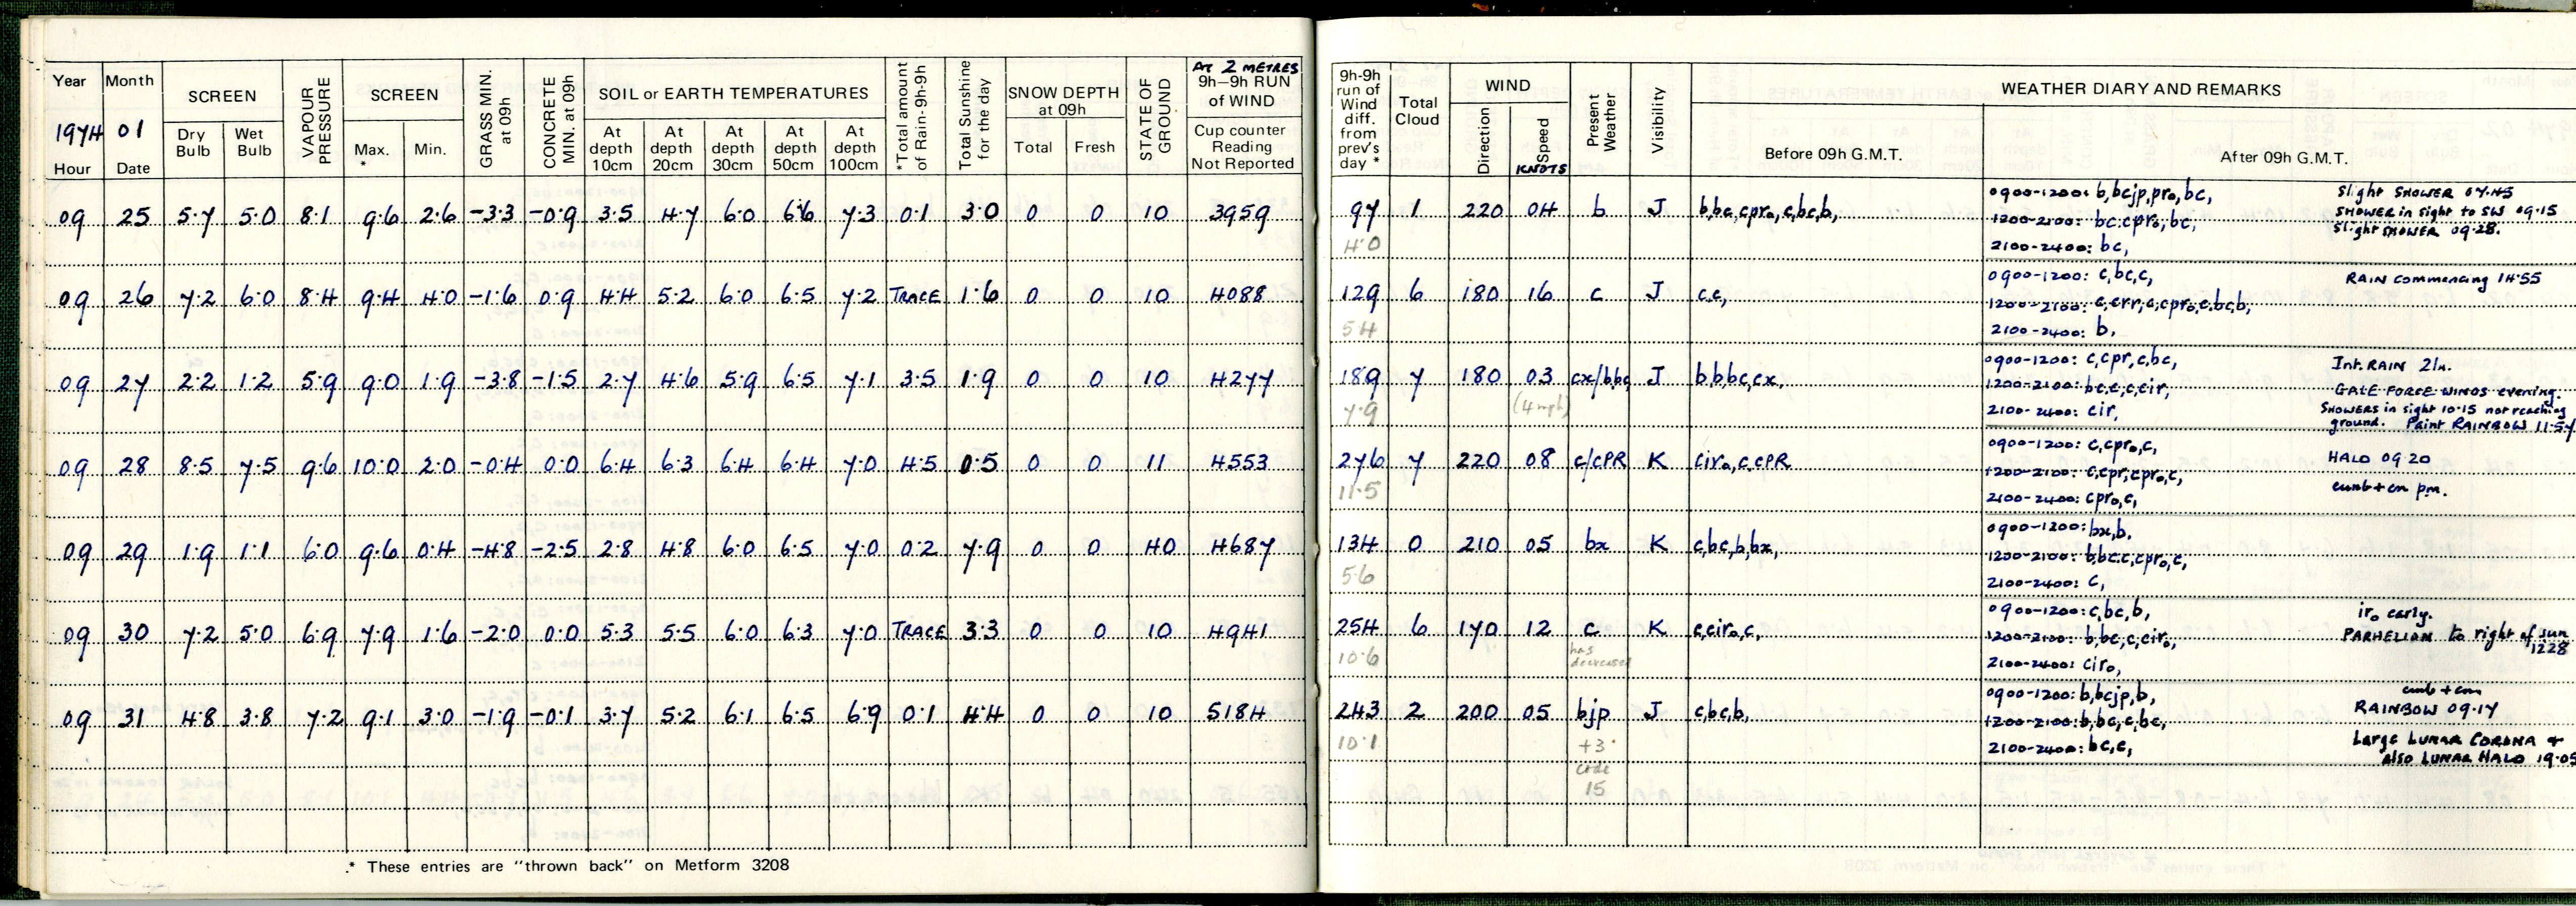 Year Month SCREEN VAPOUR PRESSURE SCREEN GRASS MIN. at 09h CONCRETE MIN. at 09h SOIL or EARTH TEMPERATURES *Total amount of Rain-9h-9h Total Sunshine for the day SNOW DEPTH at 09h STATE OF GROUND AT 2 METRES 9h–9h RUN of WIND
1974 01
Hour Date Dry Bulb Wet Bulb Max. * Min. At depth 10cm At depth 20cm At depth 30cm At depth 50cm At depth 100cm Total Fresh Cup counter Reading Not Reported
09 25 5.7 5.0 8.1 9.6 2.6 -3.3 -0.9 3.5 4.7 6.0 6.6 7.3 0.1 3.0 0 0 10 3959
09 26 7.2 6.0 8.4 9.4 4.0 -1.6 0.9 4.4 5.2 6.0 6.5 7.2 TRACE 1.6 0 0 10 4088
09 27 2.2 1.2 5.9 9.0 1.9 -3.8 -1.5 2.7 4.6 5.9 6.5 7.1 3.5 1.9 0 0 10 4277
09 28 8.5 7.5 9.6 10.0 2.0 -0.4 0.0 6.4 6.3 6.4 6.4 7.0 4.5 0.5 0 0 11 4553
09 29 1.9 1.1 6.0 9.6 0.4 -4.8 -2.5 2.8 4.8 6.0 6.5 7.0 0.2 7.9 0 0 40 4687
09 30 7.2 5.0 6.9 7.9 1.6 -2.0 0.0 5.3 5.5 6.0 6.3 7.0 TRACE 3.3 0 0 10 4941
09 31 4.8 3.8 7.2 9.1 3.0 -1.9 -0.1 3.7 5.2 6.1 6.5 6.9 0.1 4.4 0 0 10 5184
* These entries are "thrown back" on Metform 3208
9h-9h run of Wind diff. from prev's day * Total Cloud WIND Present Weather Visibility WEATHER DIARY AND REMARKS
Direction Speed KNOTS Before 09h G.M.T. After 09h G.M.T.
97 1 220 04 b J b,bc,cpro,c,bc,b, 0900-1200: b,bcjp,pro,bc, Slight SHOWER 07.45
4.0 1200-2100: bc.cpro,bc, SHOWER in sight to SW 09.15
2100-2400: bc, Slight SHOWER 09.28.
129 6 180 16 c J c.c, 0900-1200: c,bc,c, RAIN commencing 14.55
5.4 1200-2100: c,crr,c,cpro,c.bcb,
2100-2400: b,
189 7 180 03 cx/bbc J b,bbc,cx, 0900-1200: c,cpr,c,bc, Int. RAIN 21h.
7.9 (4mph) 1200-2100: bc.c,c,cir, GALE FORCE WINDS evening.
2100-2400: cir, SHOWERS in sight 10.15 not reaching
ground. Faint RAINBOW 11.57
276 7 220 08 c/cPR K ciro,c,cPR 0900-1200: c,cpro,c, HALO 09 20
11.5 1200-2100: c,cpr,cpro,c, cumb+cn pm.
2100-2400: cpro,c,
134 0 210 05 bx K c,bc,b,bx, 0900-1200: bx,b.
5.6 1200-2100: b,bc.c,cpro,c,
2100-2400: c,
254 6 170 12 c K c,ciro,c, 0900-1200: c,bc,b, iro early.
10.6 has decreased 1200-2100: b,bc,c,ciro, PARHELION to right of sun
2100-2400: ciro, 1228
243 2 200 05 bjp J c,bc,b, 0900-1200: b,bcjp,b,
10.1 +3 1200-2100: b,bc,c,bc, RAINBOW 09.17
code 2100-2400: bc,c, Large LUNAR CORONA +
15 also LUNAR HALO 19.05